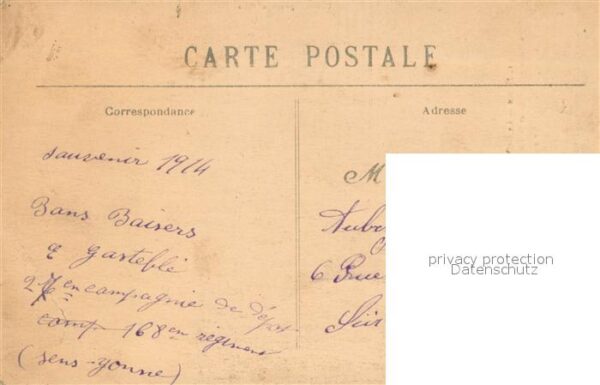 CARTE POSTALE
Correspondance
Adresse
souvenir 1914
M
Bons Baisers
E gasteblé
27en campagnie de dépot
comp 168en régiment
(sens-yonne)
6 Rue
privacy protection
Datenschutz